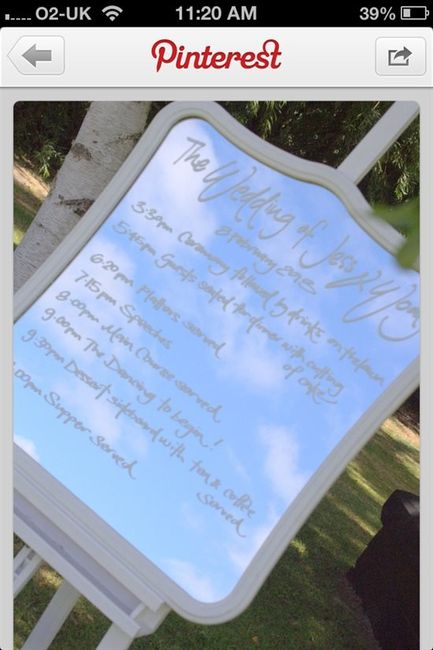 O2-UK 11:20 AM 39%
Pinterest
The Wedding of Jess &
8 February 2013
3:30pm Ceremony followed by drinks on the lawn
5:45pm Guests seated for dinner with cutting
of cake
6:20pm Platters served
7:15pm Speeches
8:00pm Main Course served
9:00pm The Dancing to begin!
9:30pm Dessert sideboard with tea & coffee
served
:00pm Supper served